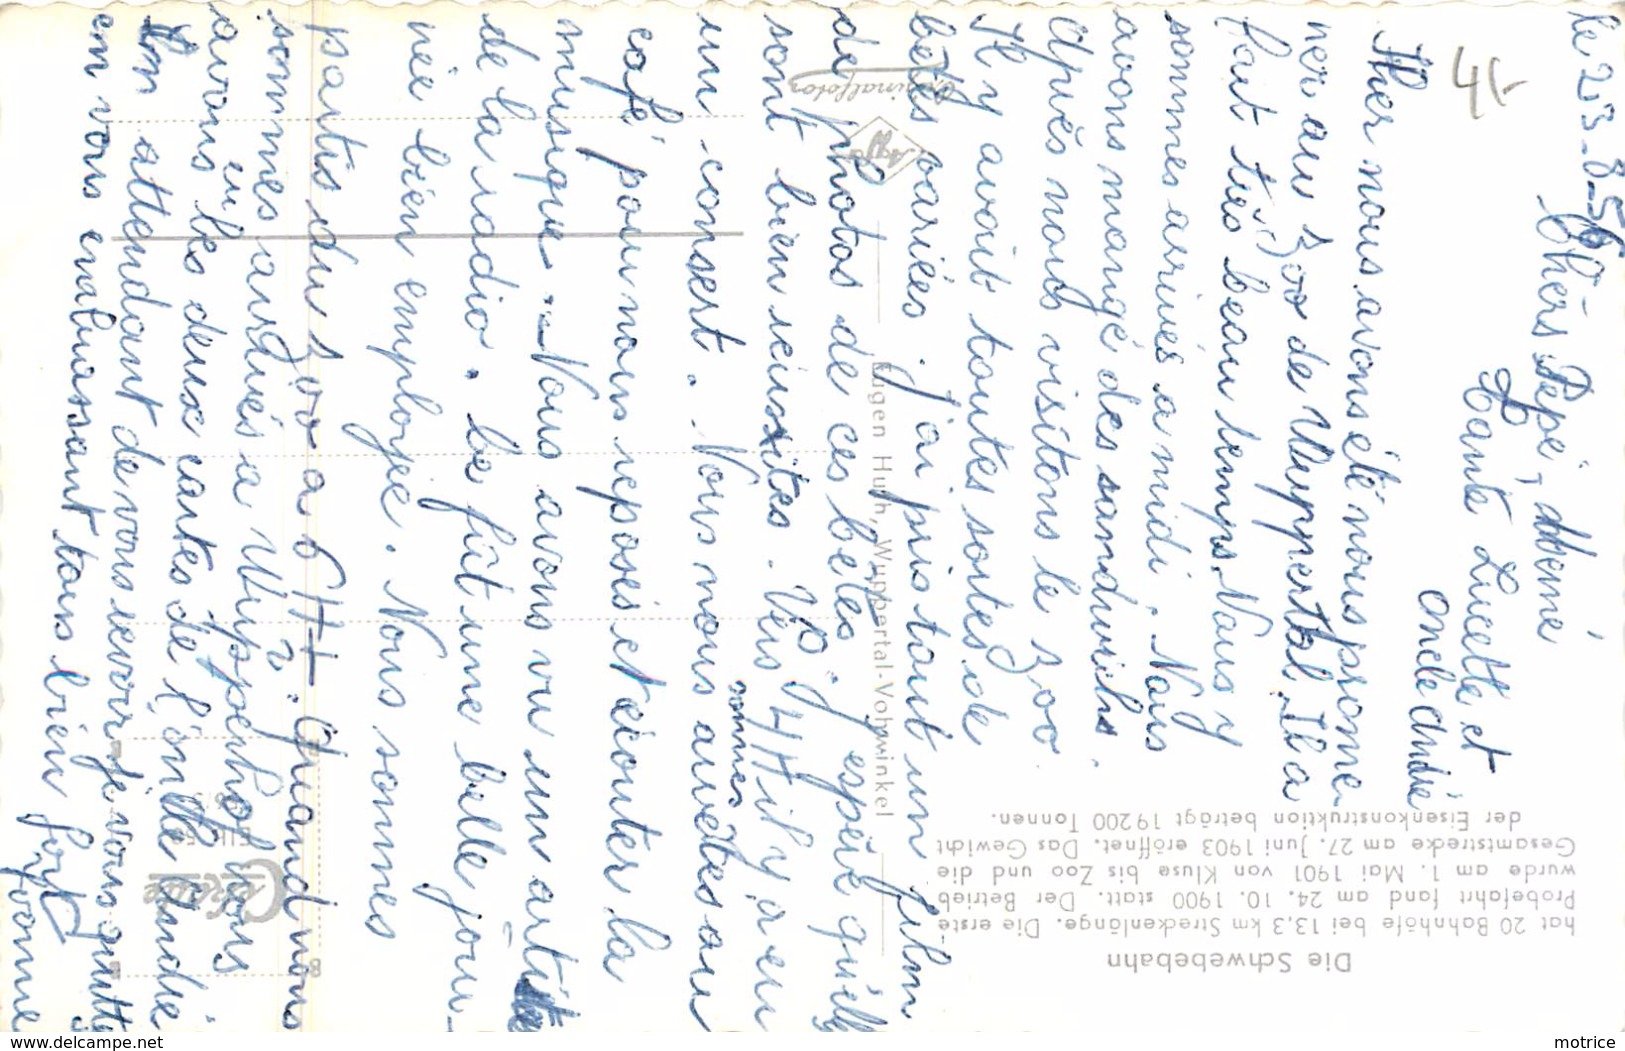 le 23-8-56-
Chers Pépé, Mémé
Tante Lucette et
oncle andré
Hier nous avons été nous prome
ner au zoo de Wuppertal. Il a
fait très beau temps. Nous y
sommes arrivés a midi. Nous
avons mangé des sandwichs.
Après nous visitons le zoo
Il y avait toutes sortes de
bêtes variées. J'ai pris tout un film
de photos de ces bêtes. J'espère qu'ell
sont bien réussites. Vers 4H il y a eu
un consert. Nous nous sommes arrêtés au
café pour nous reposés et écouter la
musique. Nous avons vu un artiste
de la radio. Ce fût une belle jour-
née bien employé. Nous sommes
partis du zoo a 6H. Quand nous
sommes arrivés a Wuppertal nous
avons eu les deux cartes de l'oncle André
En attendant de vous revoir je vous quitte
en vous embrassant tous bien fort
Yvonne
Die Schwebebahn
hat 20 Bahnhöfe bei 13,3 km Streckenlänge. Die erste
Probefahrt fand am 24. 10. 1900 statt. Der Betrieb
wurde am 1. Mai 1901 von Kluse bis Zoo und die
Gesamtstrecke am 27. Juni 1903 eröffnet. Das Gewicht
der Eisenkonstruktion beträgt 19200 Tonnen.
Eugen Huth, Wuppertal-Vohwinkel
Agfa
Originalfoto
Cekade
www.delcampe.net
motrice